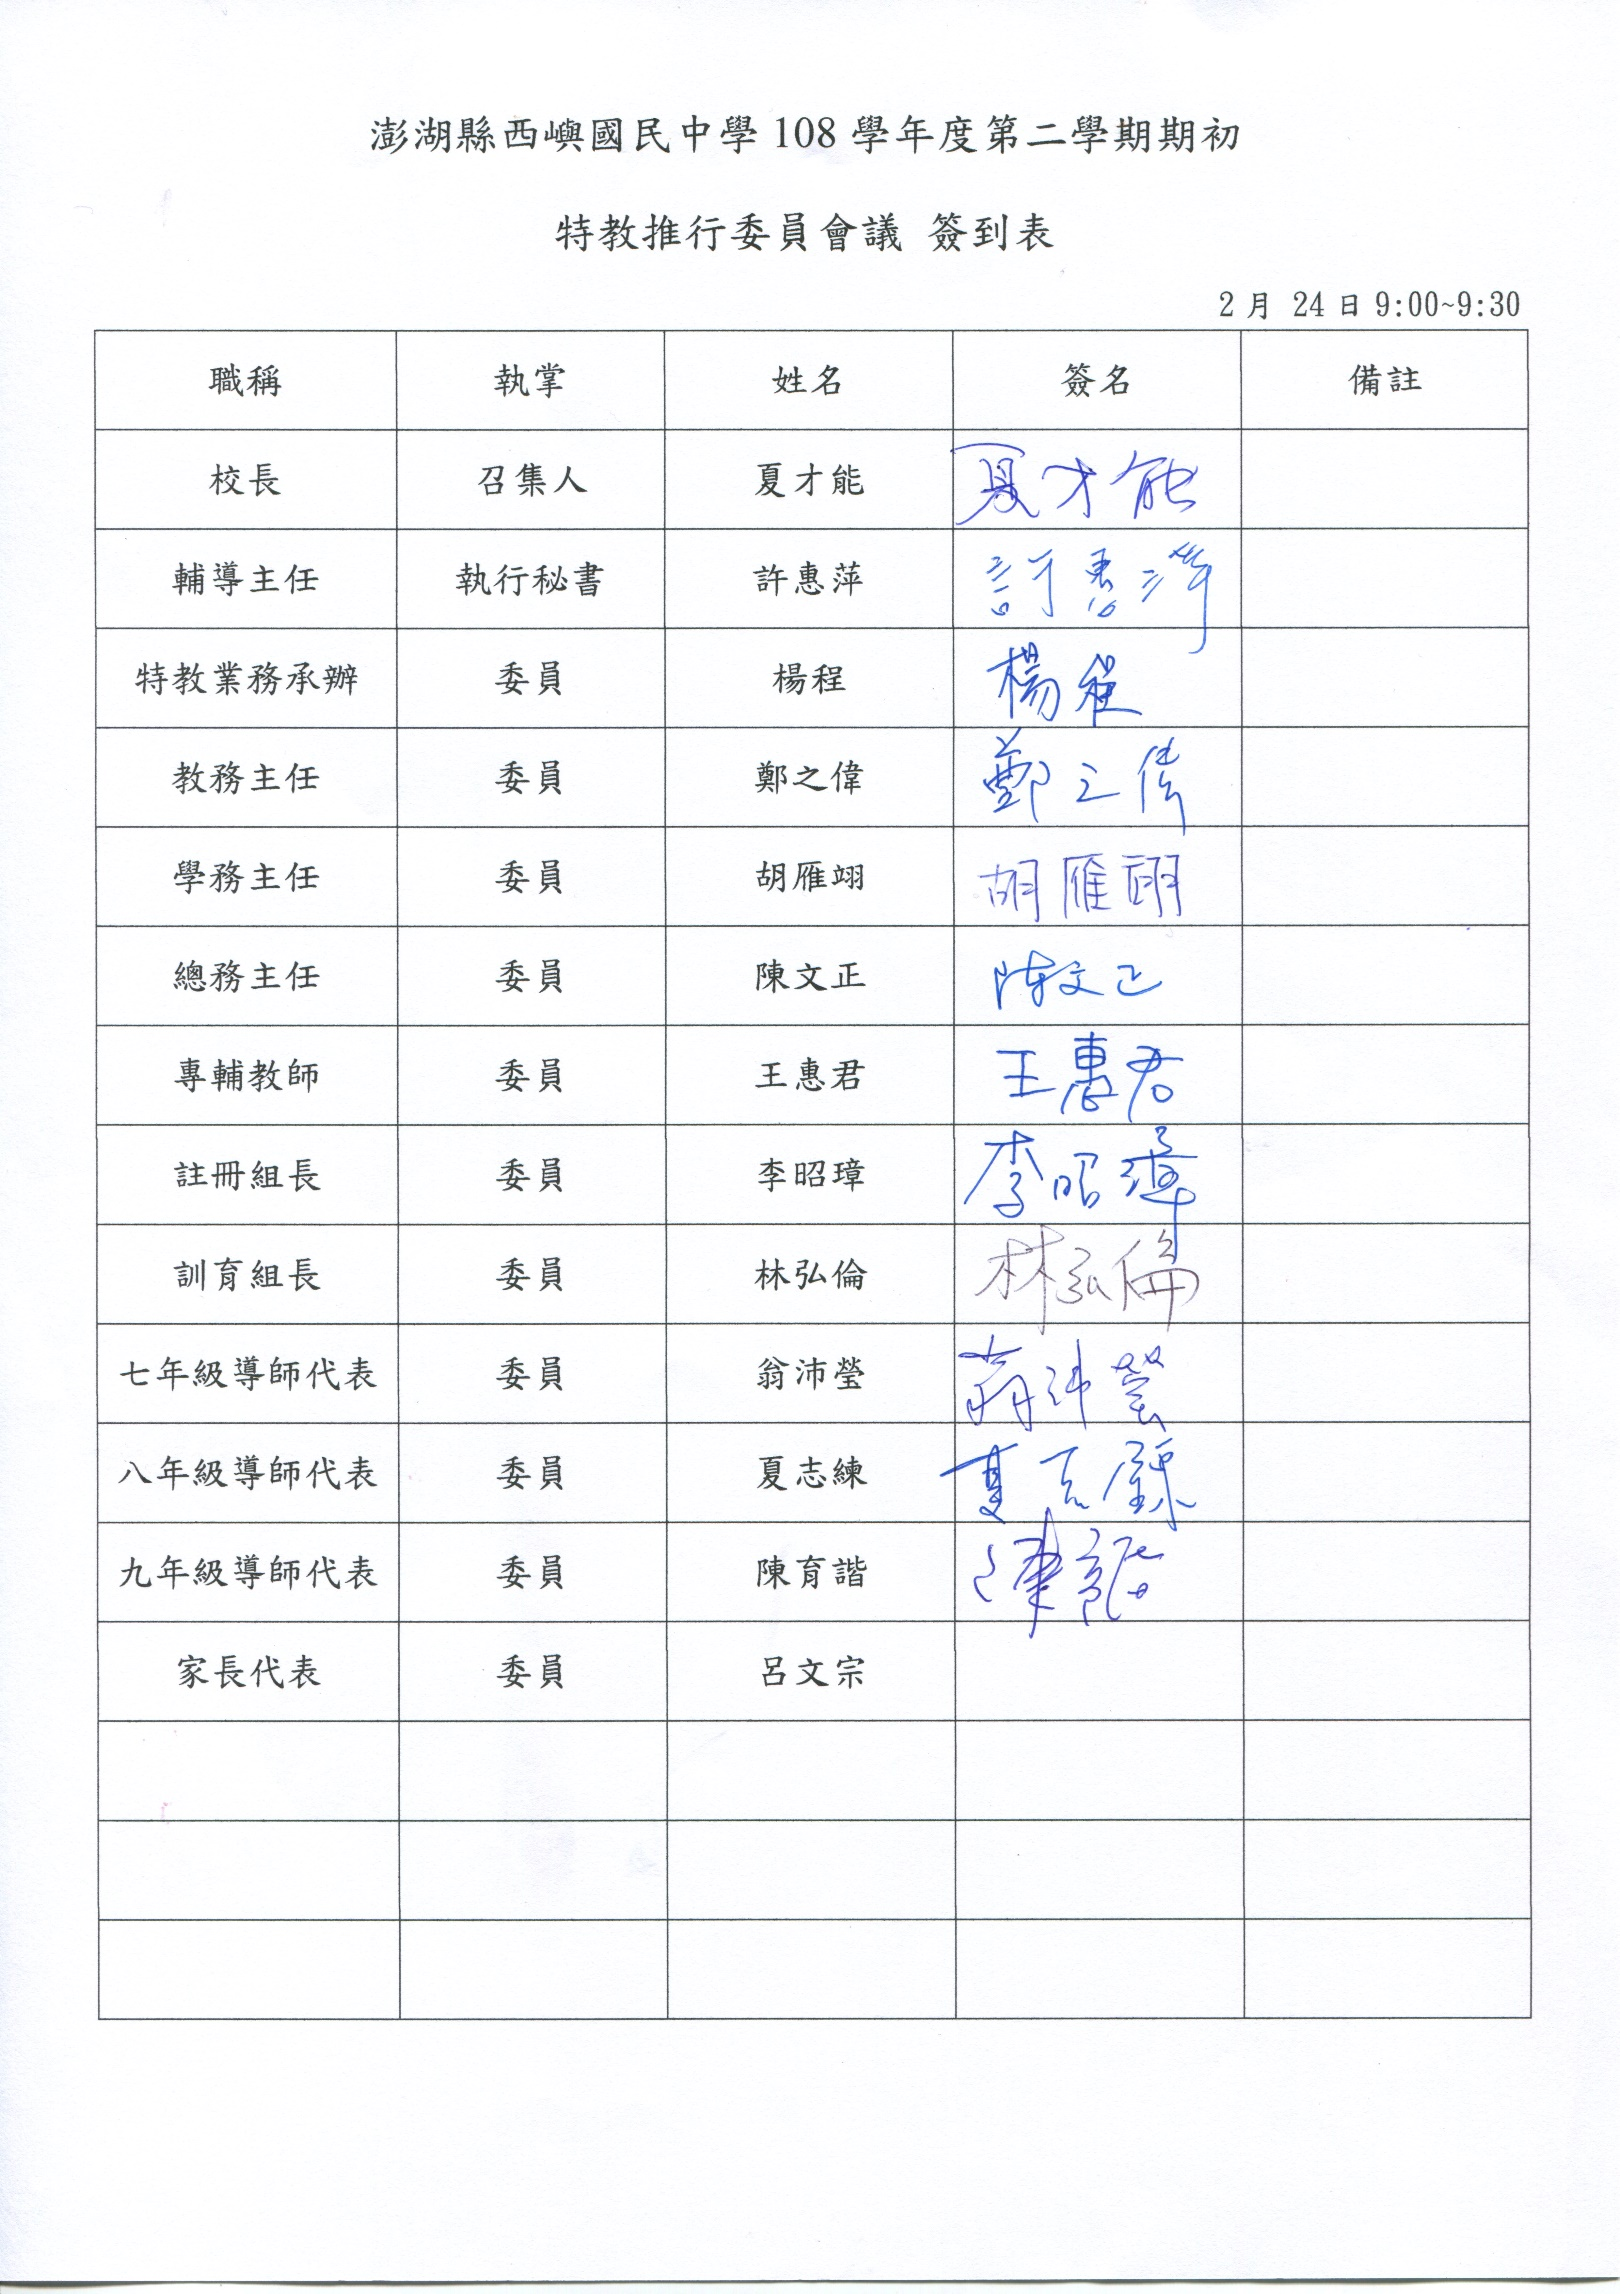 澎湖縣西嶼國民中學 108 學年度第二學期期初
特教推行委員會議 簽到表
2 月 24 日 9:00~9:30
職稱 執掌 姓名 簽名 備註
校長 召集人 夏才能 夏才能
輔導主任 執行秘書 許惠萍 許惠萍
特教業務承辦 委員 楊程 楊程
教務主任 委員 鄭之偉 鄭之偉
學務主任 委員 胡雁翊 胡雁翊
總務主任 委員 陳文正 陳文正
專輔教師 委員 王惠君 王惠君
註冊組長 委員 李昭璋 李昭璋
訓育組長 委員 林弘倫 林弘倫
七年級導師代表 委員 翁沛瑩 翁沛瑩
八年級導師代表 委員 夏志練 夏志練
九年級導師代表 委員 陳育諧 陳育諧
家長代表 委員 呂文宗